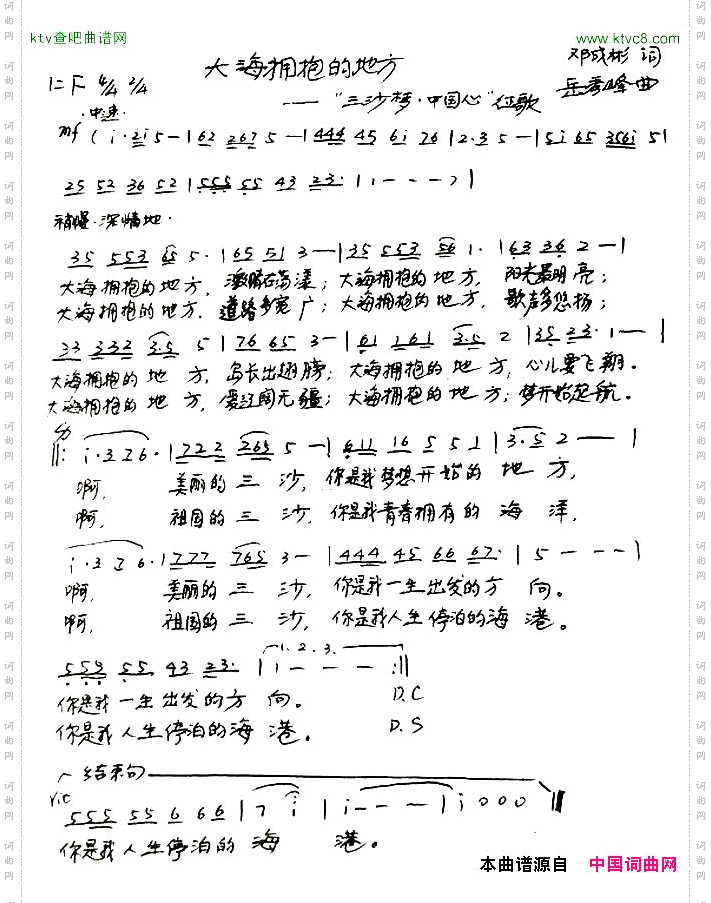 ktv查吧曲谱网 www.ktvc8.com
大海拥抱的地方
邓成彬 词
1=F 4/4 2/4
——"三沙梦·中国心"征歌
岳秀峰 曲
·中速·
mf ( i·2i 5 - | 62 267 5 - | 444 45 6i 76 | 2·3 5 - | 5i 65 356i 5 |
25 52 36 52 | 555 55 43 23· | 1 - - - ) |
稍慢·深情地·
35 553 65 5· | 65 51 3 - | 35 553 56 1· | 63 36 2 - |
大海拥抱的地方, 激情在荡漾; 大海拥抱的地方, 阳光最明亮;
大海拥抱的地方, 道路多宽广; 大海拥抱的地方, 歌声多悠扬;
33 332 3·5 5 | 76 65 3 - | 61 161 3·5 2 | 35 23· 1 - |
大海拥抱的地方, 岛长出翅膀; 大海拥抱的地方, 心儿要飞翔.
大海拥抱的地方, 爱辽阔无疆; 大海拥抱的地方; 梦开始起航.
‖: i·3 26· | 722 265 5 - | 611 16 5 5 1 | 3·5 2 - |
啊, 美丽的三沙, 你是我梦想开始的地方,
啊, 祖国的三沙, 你是我青春拥有的海洋,
i·3 26· | 777 765 3 - | 444 45 66 67· | 5 - - - |
啊, 美丽的三沙, 你是我一生出发的方向。
啊, 祖国的三沙, 你是我人生停泊的海港。
555 55 43 23· | 1.2.3. 1 - - - :‖
你是我一生出发的方向. D.C
你是我人生停泊的海港. D.S
结束句
555 55 6 66 | 7 i | i - - - | i 0 0 0 ‖
你是我人生停泊的海港.
本曲谱源自 中国词曲网
词曲网